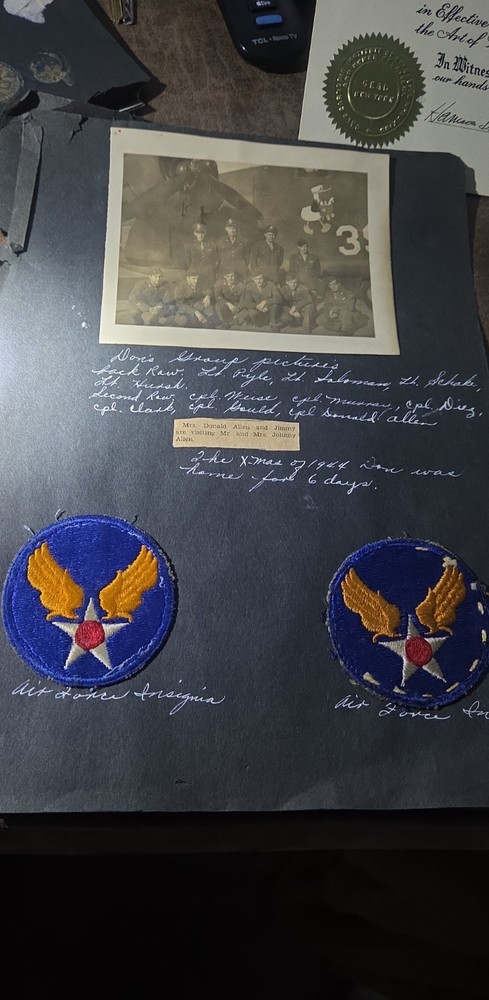 live
TCL • Roku TV
in Effective
the Art of
In Witness
our hands
SEAL
NEW YORK
39
Don's Group pictures
back Row. Lt. Pyle, Lt. Saloman, Lt. Schake,
Lt. Hursh.
Second Row, cpl. Muse cpl. Munnas, cpl. Diez,
cpl. Clark, cpl. Gould, cpl Donald Allen
Mrs. Donald Allen and Jimmy
are visiting Mr. and Mrs. Johnny
Allen.
The X-mas of 1944 Don was
home for 6 days.
Air Force Insignia
Air Force In